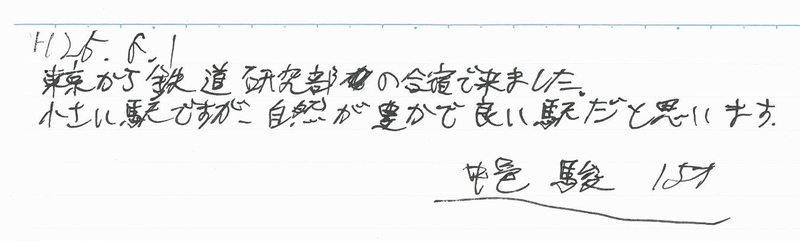 H26.6.1
東京から鉄道研究部の合宿で来ました。
小さい駅ですが、自然が豊かで良い駅だと思います。
中邑 駿 15才